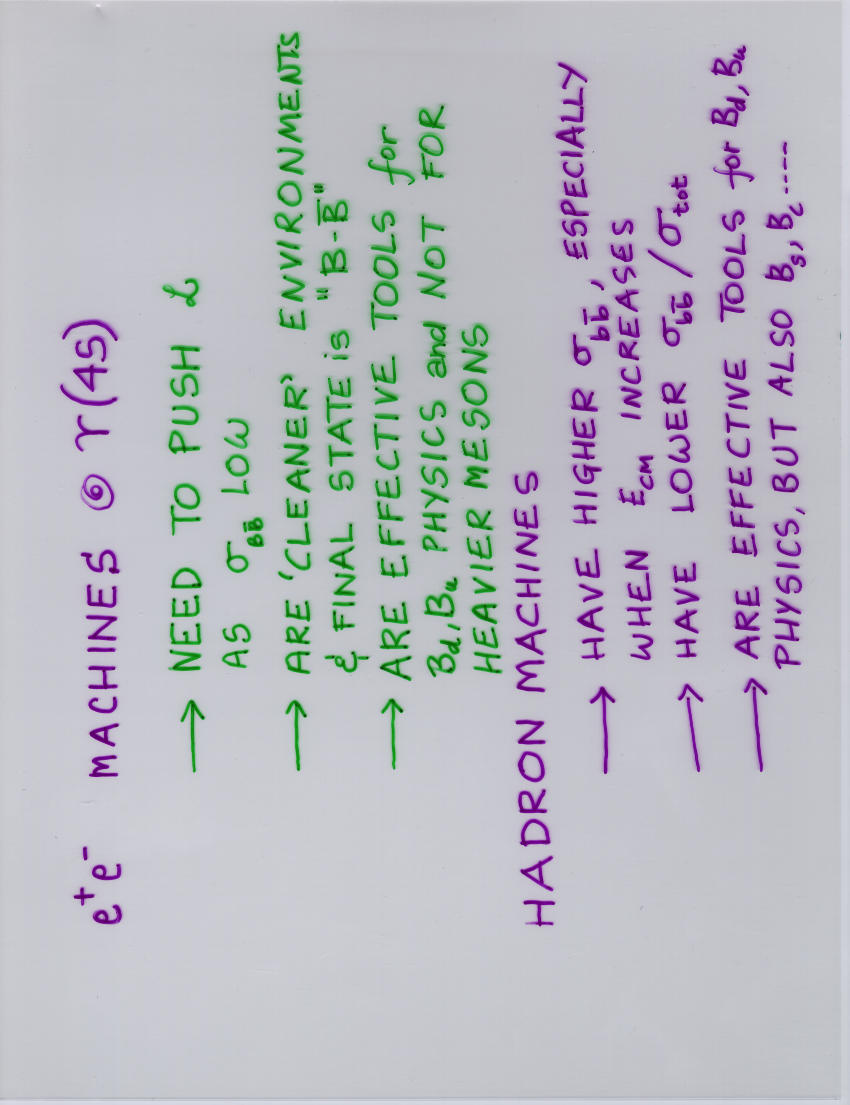 e⁺e⁻ MACHINES @ ϒ(4S)
→ NEED TO PUSH ℒ
AS σ_BB̄ LOW
→ ARE 'CLEANER' ENVIRONMENTS
& FINAL STATE is "B-B̄"
→ ARE EFFECTIVE TOOLS for
B_d, B_u PHYSICS and NOT FOR
HEAVIER MESONS
HADRON MACHINES
→ HAVE HIGHER σ_bb̄, ESPECIALLY
WHEN E_CM INCREASES
→ HAVE LOWER σ_bb̄ / σ_tot
→ ARE EFFECTIVE TOOLS for B_d, B_u
PHYSICS, BUT ALSO B_s, B_c -----